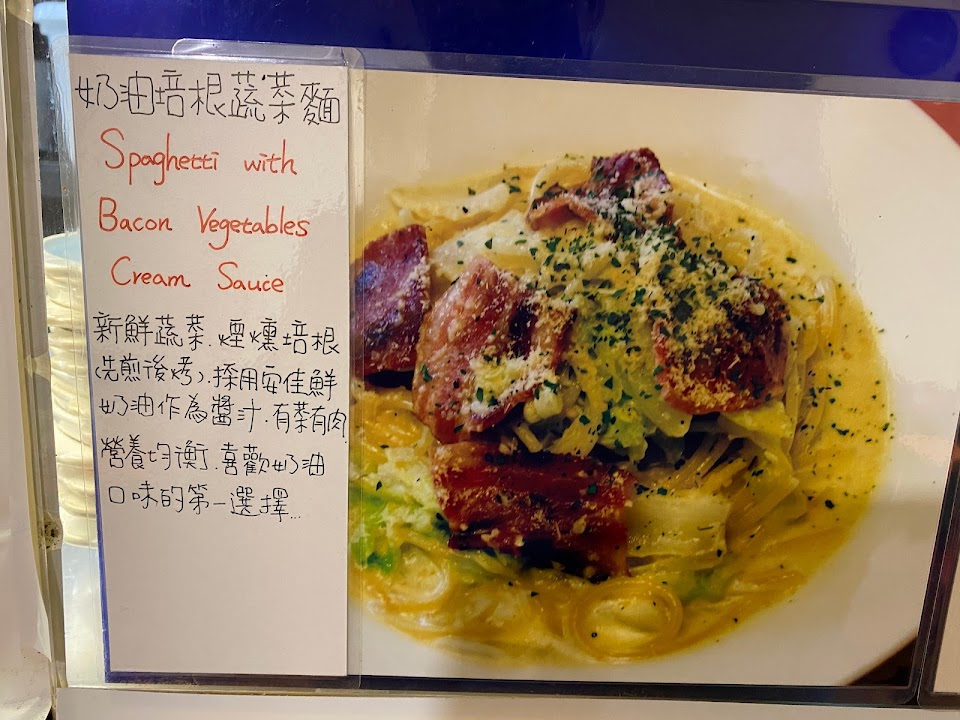 奶油培根蔬菜麵
Spaghetti with
Bacon Vegetables
Cream Sauce
新鮮蔬菜.煙燻培根
(先煎後烤).採用安佳鮮
奶油作為醬汁.有菜有肉
營養均衡.喜歡奶油
口味的第一選擇...